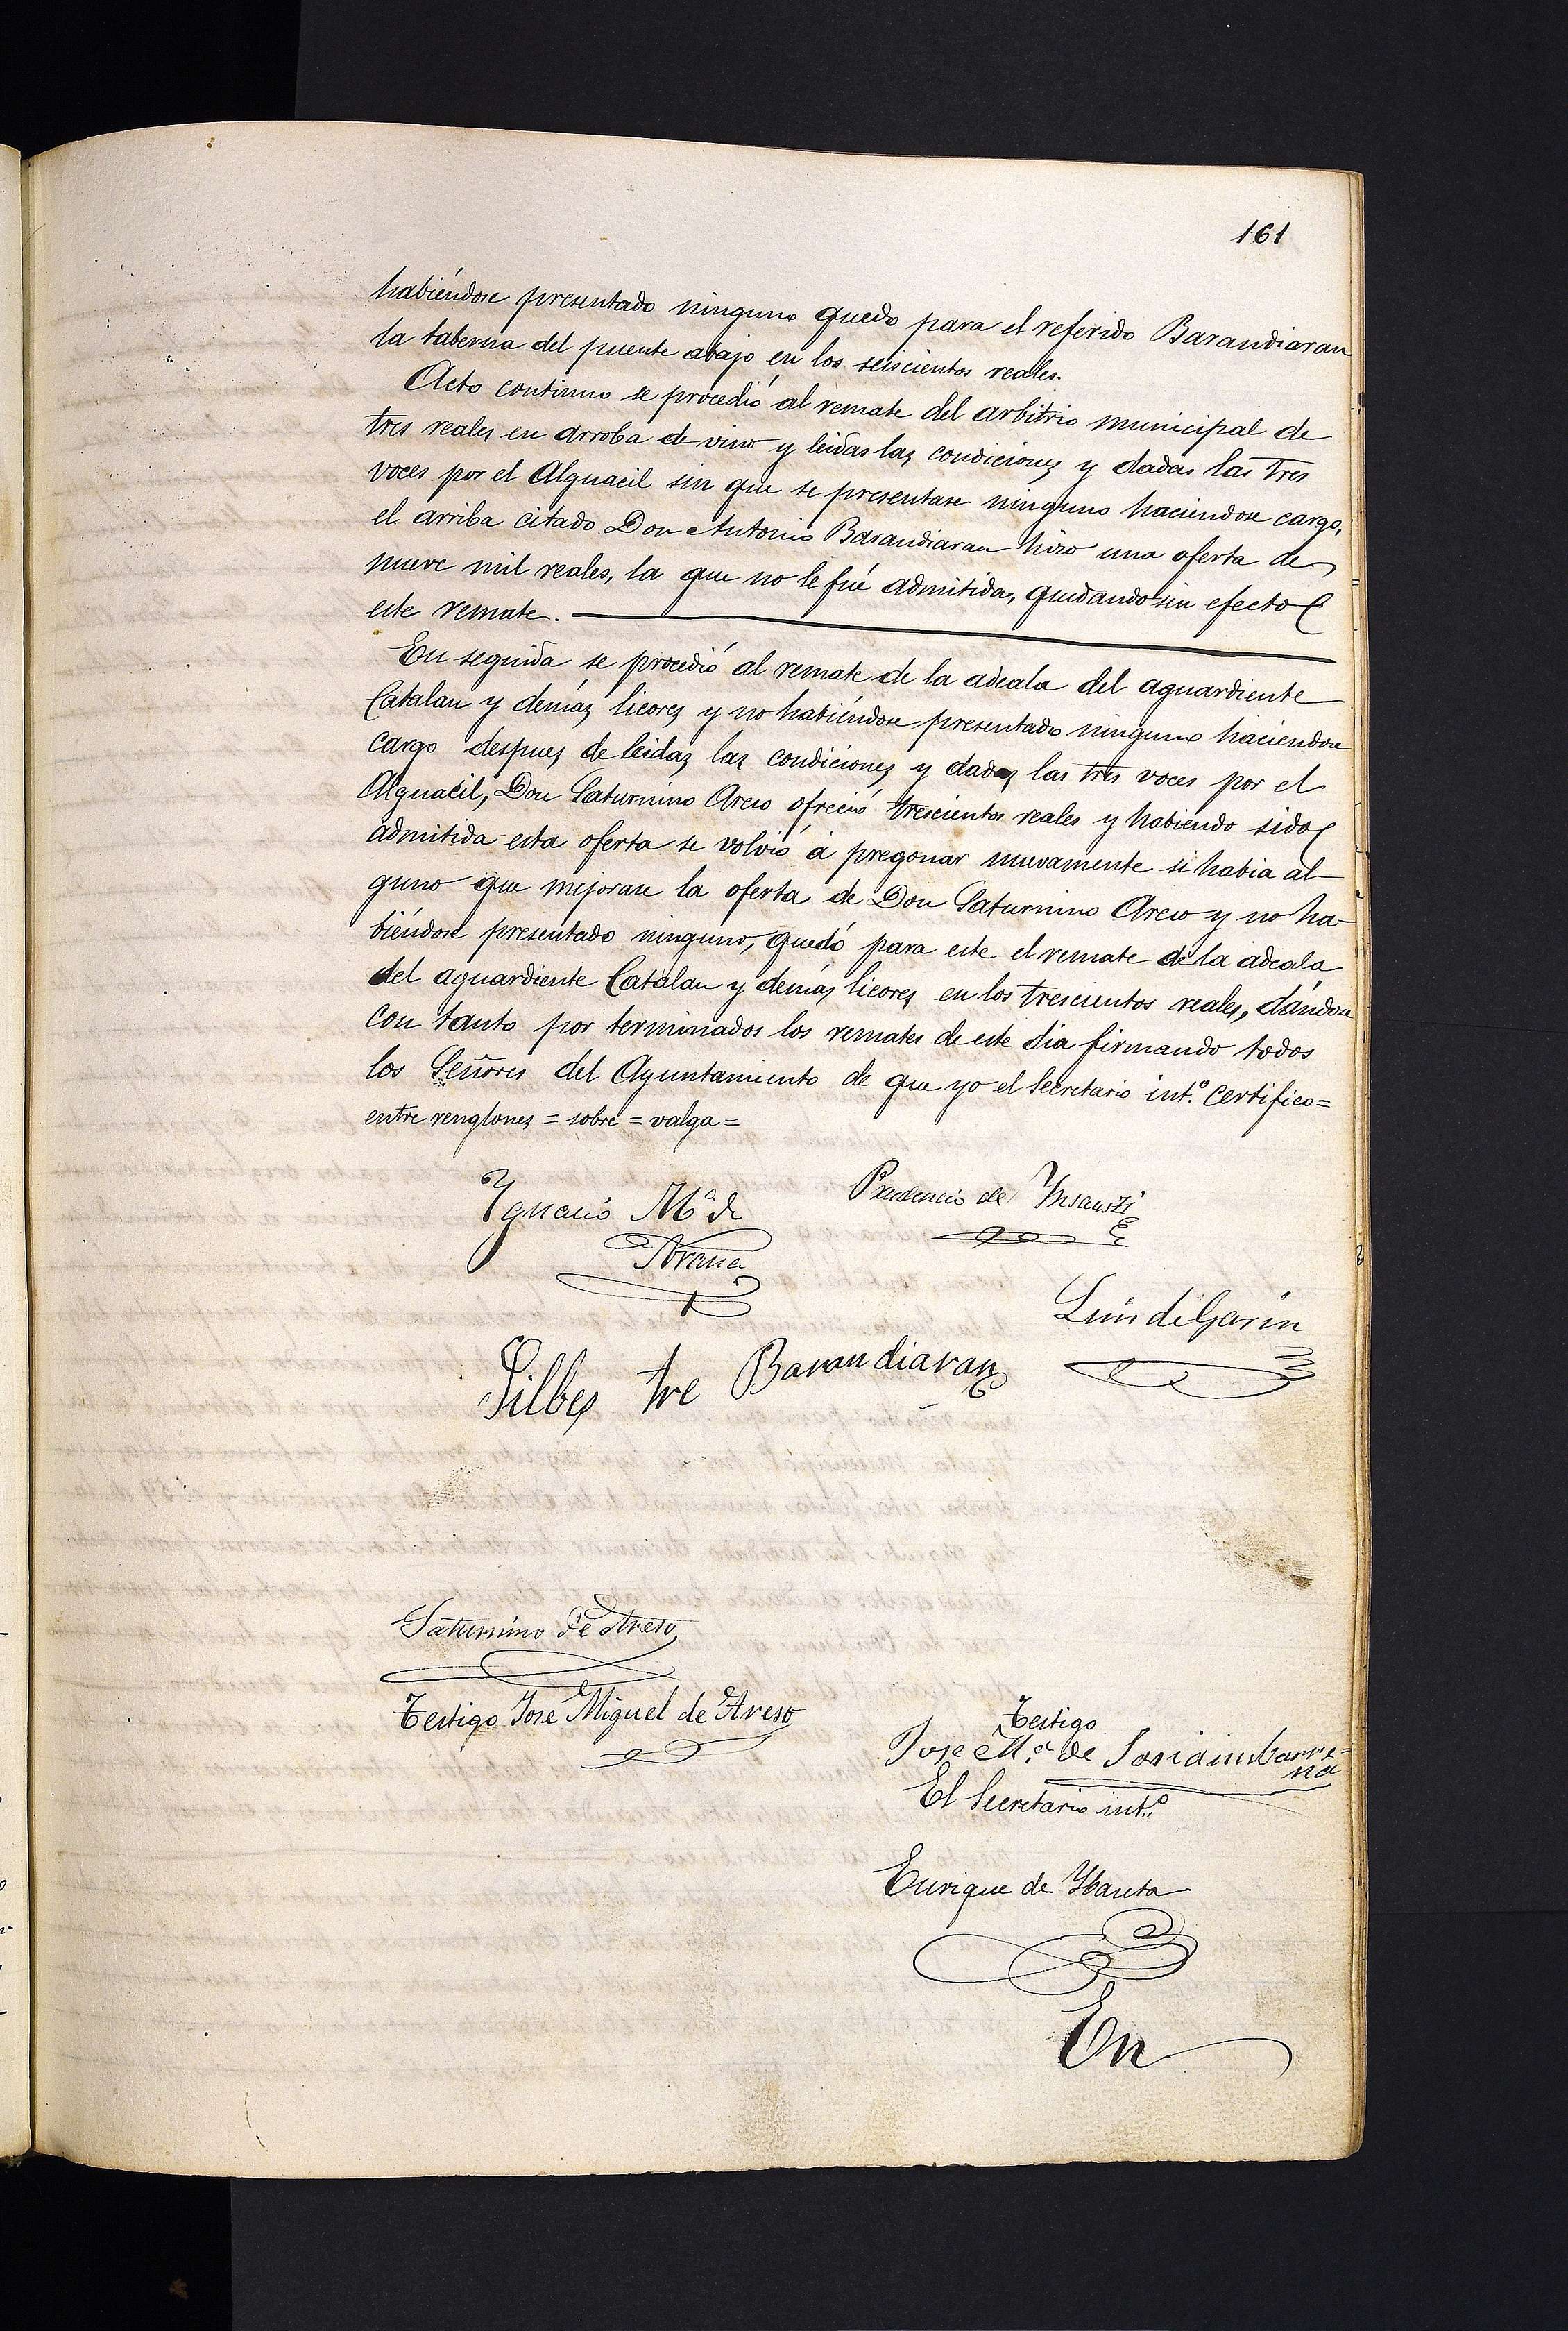 161
habiéndose presentado ninguno quedo para el referido Barandiaran
la taberna del puente abajo en los seiscientos reales.
Acto continuo se procedió al remate del arbitrio municipal de
tres reales en arroba de vino y leidas las condiciones y dadas las tres
voces por el Alguacil sin que se presentase ninguno haciendose cargo,
el arriba citado Don Antonio Barandiaran hizo una oferta de
nueve mil reales, la que no le fué admitida, quedando sin efecto
este remate.
En seguida se procedió al remate de la adeala del aguardiente
Catalan y demás licores y no habiéndose presentado ninguno haciendose
cargo despues de leidas las condiciones y dadas las tres voces por el
Alguacil, Don Saturnino Areso ofreció trescientos reales y habiendo sido
admitida esta oferta se volvió á pregonar nuevamente si habia al
guno que mejorase la oferta de Don Saturnino Areso y no ha-
biéndose presentado ninguno, quedó para este el remate de la adeala
del aguardiente Catalan y demás licores en los trescientos reales, dándose
con tanto por terminados los remates de este dia firmando todos
los Señores del Ayuntamiento de que yo el Secretario int.º certifico=
entre renglones = sobre = valga =
Ygnacio Mª de
Prudencio de Ynsausti
Arana
Luis de Garin
Silbes tre Barandiaran
Saturnino de Areso
Testigo José Miguel de Areso
Testigo
Jose M.ª de Soriaimbarre=
na
El Secretario int.º
Enrique de
En